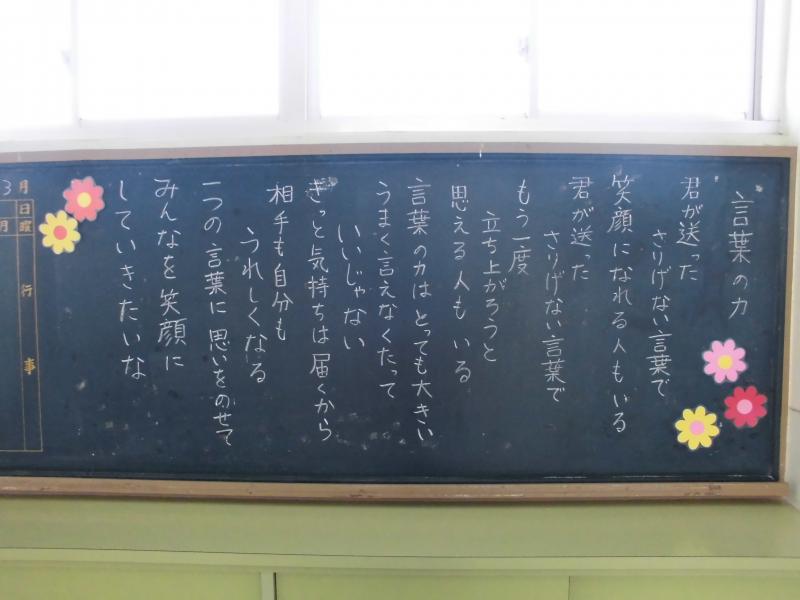 言葉の力
君が送った
さりげない言葉で
笑顔になれる人もいる
君が送った
さりげない言葉で
もう一度
立ち上がろうと
思える人もいる
言葉の力はとっても大きい
うまく言えなくたって
いいじゃない
きっと気持ちは届くから
相手も自分も
うれしくなる
一つの言葉に思いをのせて
みんなを笑顔に
していきたいな
3月
日曜
行事
月